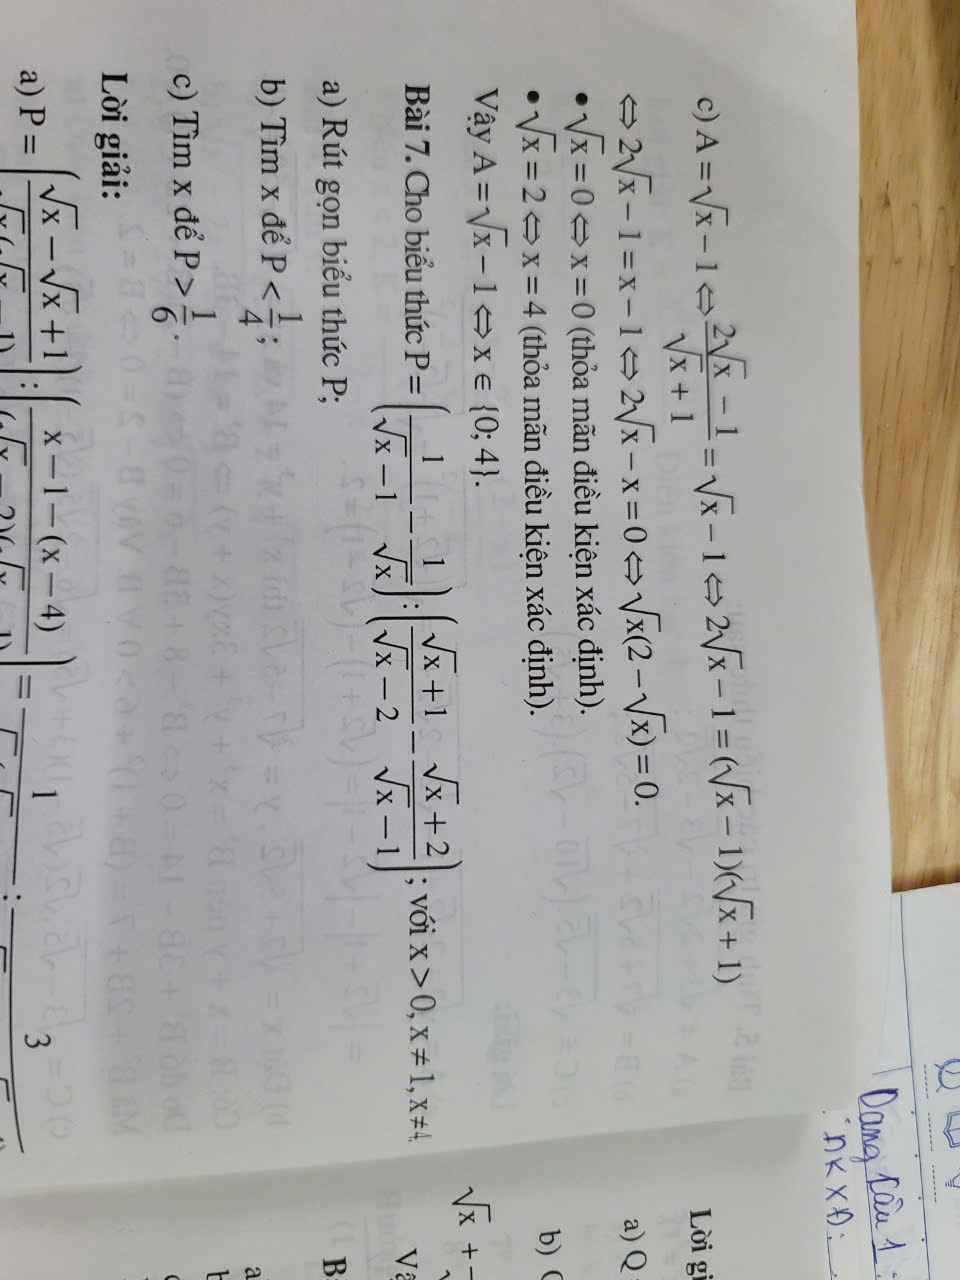 c) A = √x − 1 ⇔ (2√x − 1)/(√x + 1) = √x − 1 ⇔ 2√x − 1 = (√x − 1)(√x + 1)
⇔ 2√x − 1 = x − 1 ⇔ 2√x − x = 0 ⇔ √x(2 − √x) = 0.
• √x = 0 ⇔ x = 0 (thỏa mãn điều kiện xác định).
• √x = 2 ⇔ x = 4 (thỏa mãn điều kiện xác định).
Vậy A = √x − 1 ⇔ x ∈ {0; 4}.
Bài 7. Cho biểu thức P = (1/(√x − 1) − 1/√x) : ((√x + 1)/(√x − 2) − (√x + 2)/(√x − 1)); với x > 0, x ≠ 1, x ≠ 4
a) Rút gọn biểu thức P;
b) Tìm x để P < 1/4;
c) Tìm x để P > 1/6.
Lời giải:
a) P = ((√x − √x + 1)/(√x(√x − 1))) : ((x − 1 − (x − 4))/((√x − 2)(√x − 1))) = 1 : 3
Dạng câu 1
ĐKXĐ:
Lời gi
a) Q
b)
√x +